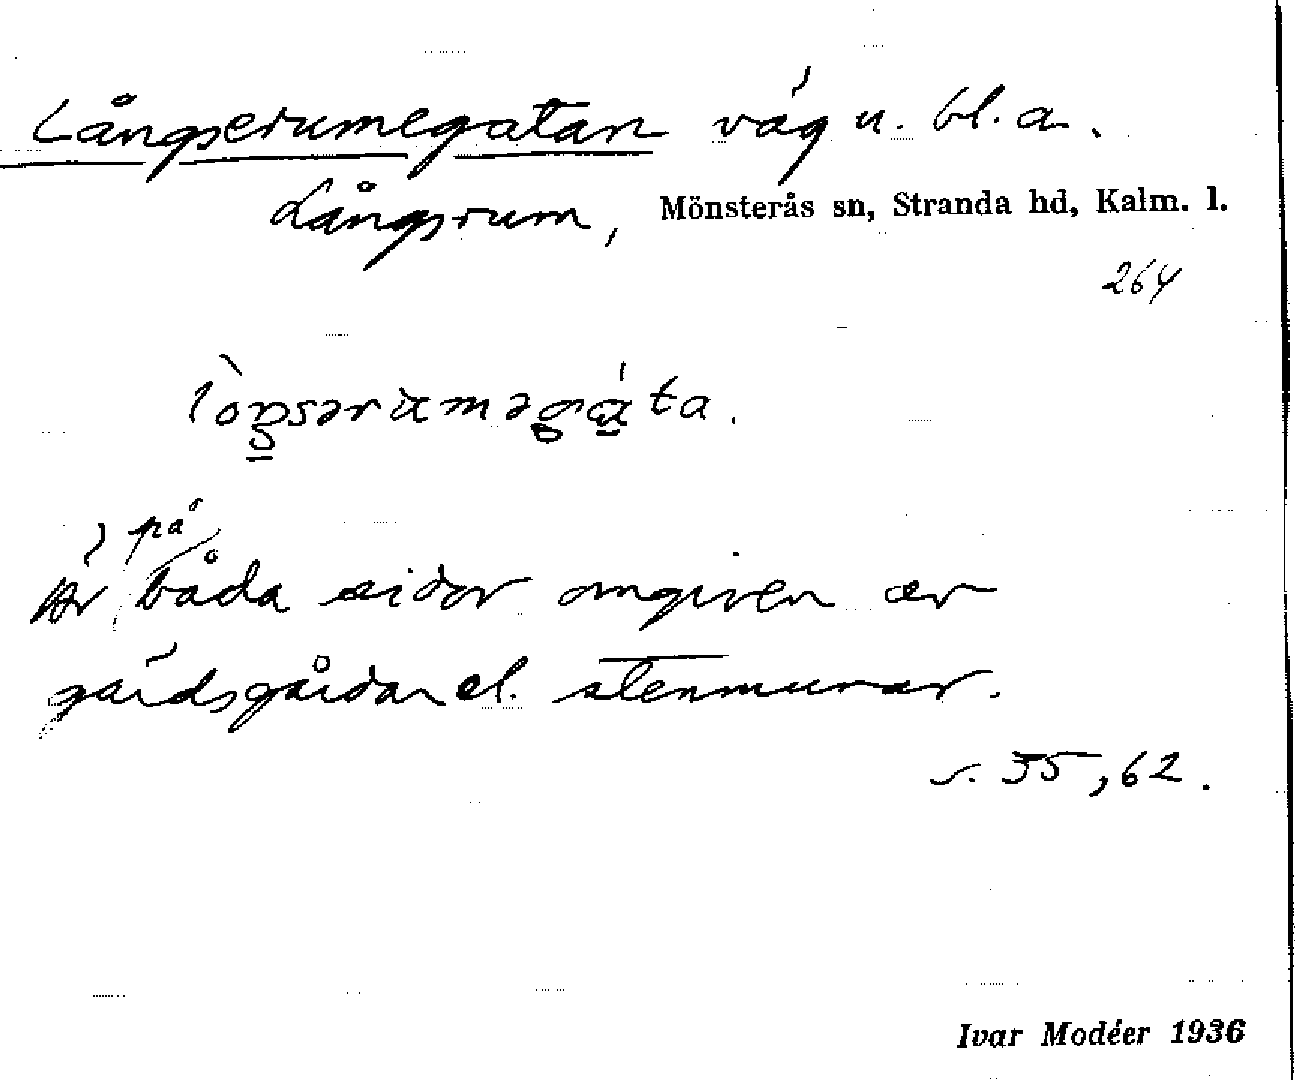 Långserumegatan väg u. bl. a.
Långsrum, Mönsterås sn, Stranda hd, Kalm. l.
264
på
Är båda sidor omgiven av
gärdsgårdar el. stenmurar.
s. 35, 62.
Ivar Modéer 1936